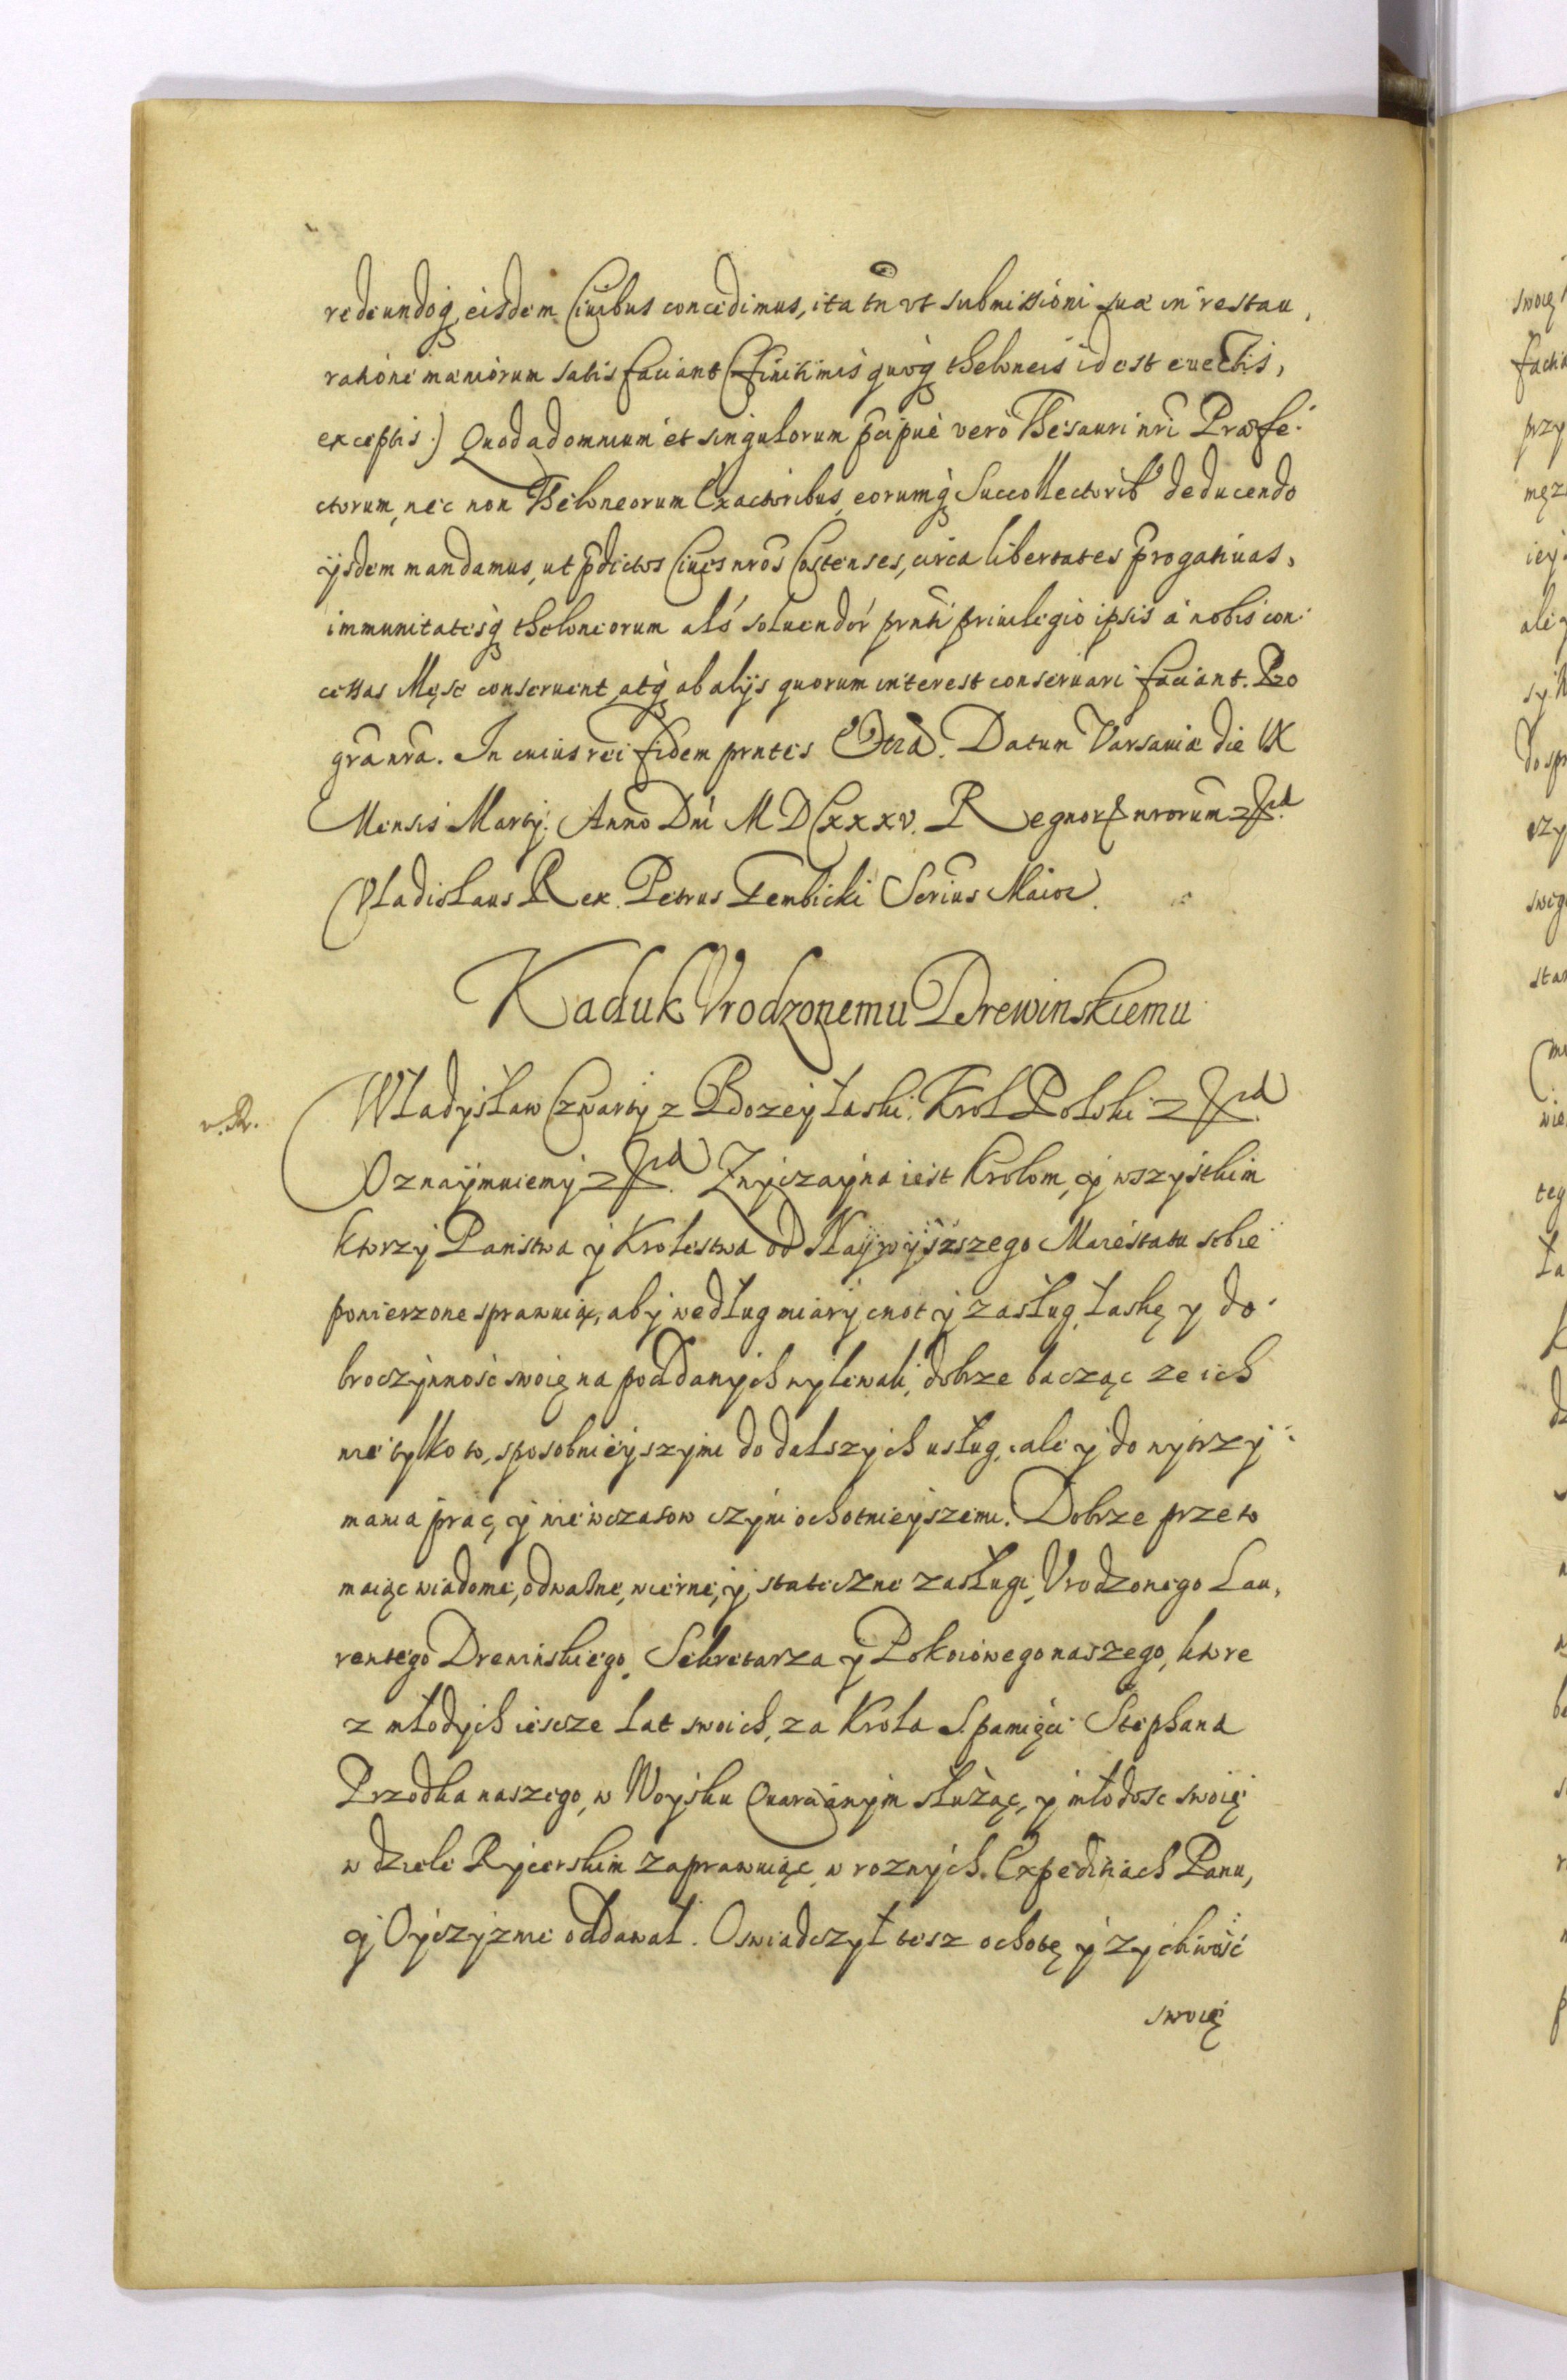 redeundoq eisdem Ciuibus concedimus, ita tn vt submissioni suæ in restau,
rationé mæniorum satis faciant (finitimis quoq theloneis id est euectis,
exceptis.) Quod ad omnium et singulorum pcipuè vero Thesauri nri Præfe-
ctorum, nec non Theloneorum Exactoribus, eorumq Succollectorib deducendo
ijsdem mandamus, ut pdictos Ciues nros Costenses, circa libertates progatiuas,
immunitatesq theloneorum als soluendor prnti priuilegio ipsis á nobis con-
cessas conseruent atq ab alijs quorum interest conseruari faciant. Pro
gra nra. In cuius rei fidem prntes Etra. Datum Varsauiæ die IX
Mensis Martij. Anno Dni MDCxxxv. Regnor nrorum etc.
Vladislaus Rex. Petrus Gembicki Scrius Maior.
Kaduk Vrodzonemu Drewinskiemu
Władysław Czwarty z Bozey Łaski Krol Polski etc.
Oznaymuiemy etc. Zwyczayna iest Krolom, y wszystkim
ktorzy Panstwa y Krolestwa od Naywyższego Maiestatu sobie
powierzone sprawuią, aby według miary cnot y zasług łaskę y do-
broczynnosc swoię na poddanych wylewali, dobrze bacząc ze ich
nie tylko to, sposobnieyszymi do dalszych usług, ale y do wytrzy-
mania prac, y niewczasow czyni ochotnieyszemi. Dobrze przeto
maiąc wiadome, odważne, wierne, y stateczne zasługi, Vrodzonego Lau,
rentego Drewinskiego, Sekretarza y Pokoiowego naszego, ktore
z młodych iescze lat swoich, za Krola S. pamięci Stephana
Przodka naszego, w Woysku Quarcianym służąc, y młodosc swoię
w dziele Rycerskim zaprawuiąc, w roznych Expeditiach Panu,
y Oyczyznie oddawał. Oswiadczył tesz ochotę y zyczliwość
swoię